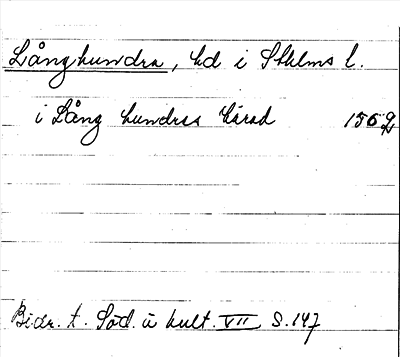 Långhundra, hd i Sthlms l.
i Lång hundra härad 1562
Bidr. t. Söd. ä kult. VII S. 147